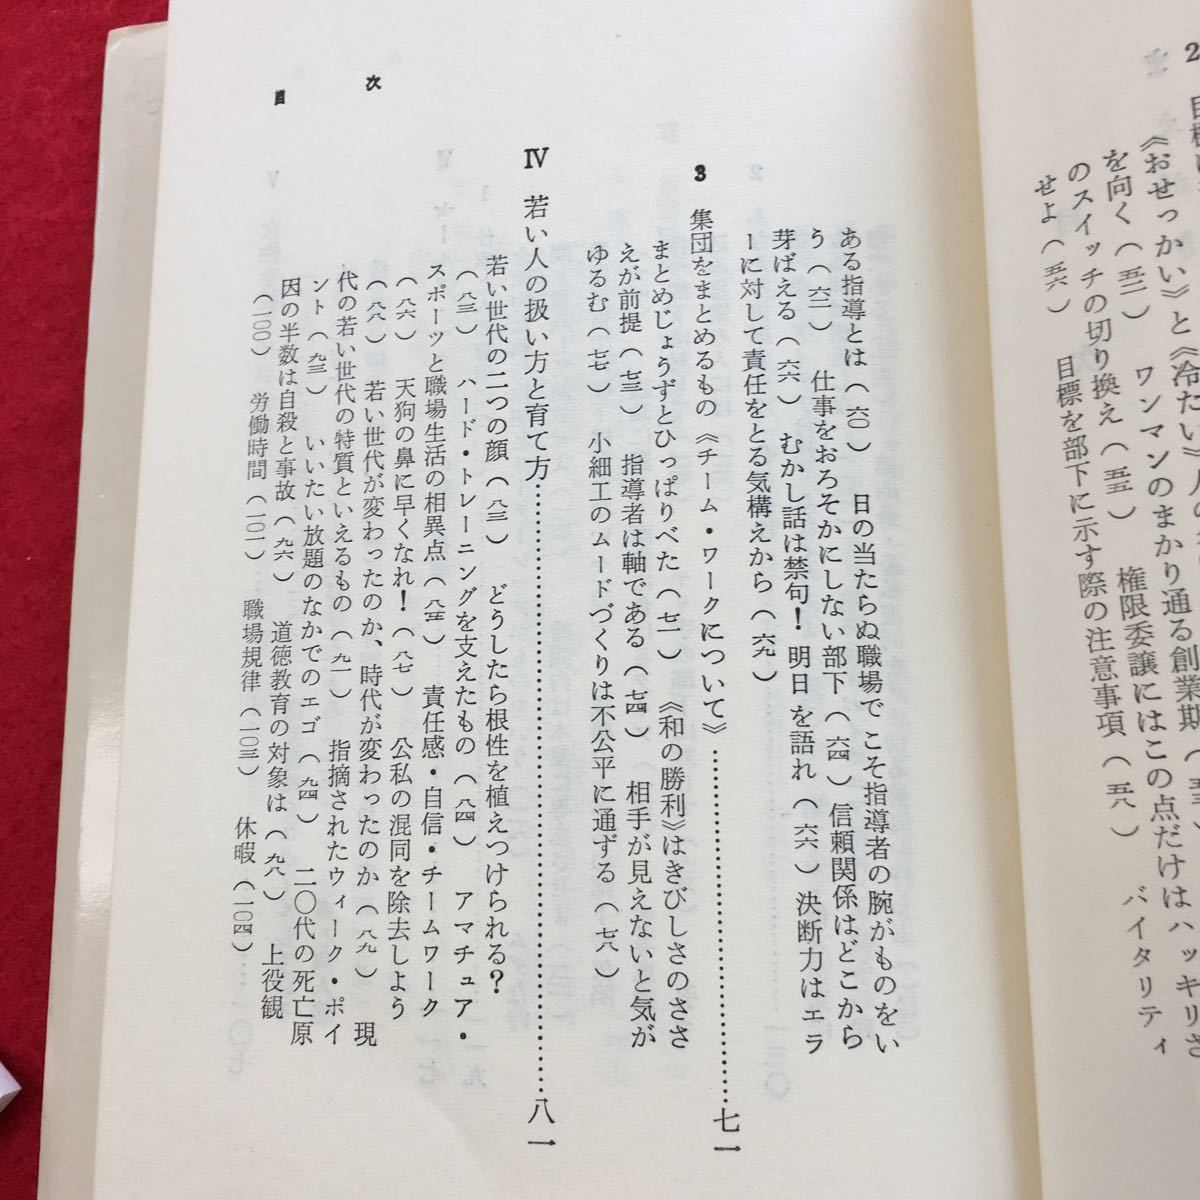 2
《おせっかい》と《冷たい》人の
を向く（五二）　ワンマンのまかり通る創業期（五三）
のスイッチの切り換え（五五）　権限委譲にはこの点だけはハッキリさ
せよ（五六）　目標を部下に示す際の注意事項（五八）　バイタリティ
ある指導とは（六〇）　日の当たらぬ職場でこそ指導者の腕がものをい
う（六二）　仕事をおろそかにしない部下（六四）信頼関係はどこから
芽ばえる（六六）　むかし話は禁句！明日を語れ（六六）決断力はエラ
ーに対して責任をとる気構えから（六九）
3　集団をまとめるもの《チーム・ワークについて》…………七一
まとめじょうずとひっぱりべた（七二）　《和の勝利》はきびしさのささ
えが前提（七三）　指導者は軸である（七四）　相手が見えないと気が
ゆるむ（七七）　小細工のムードづくりは不公平に通ずる（七八）
Ⅳ　若い人の扱い方と育て方…………八一
若い世代の二つの顔（八三）　どうしたら根性を植えつけられる？
（八三）　ハード・トレーニングを支えたもの（八四）　アマチュア・
スポーツと職場生活の相異点（八五）　責任感・自信・チームワーク
（八六）　天狗の鼻に早くなれ！（八七）　公私の混同を除去しよう
（八八）　若い世代が変わったのか、時代が変わったのか（八九）　現
代の若い世代の特質といえるもの（九一）　指摘されたウィーク・ポイ
ント（九三）　いいたい放題のなかでのエゴ（九四）　二〇代の死亡原
因の半数は自殺と事故（九六）　道徳教育の対象は（九八）　上役観
（一〇〇）　労働時間（一〇一）　職場規律（一〇三）　休暇（一〇四）
目　次